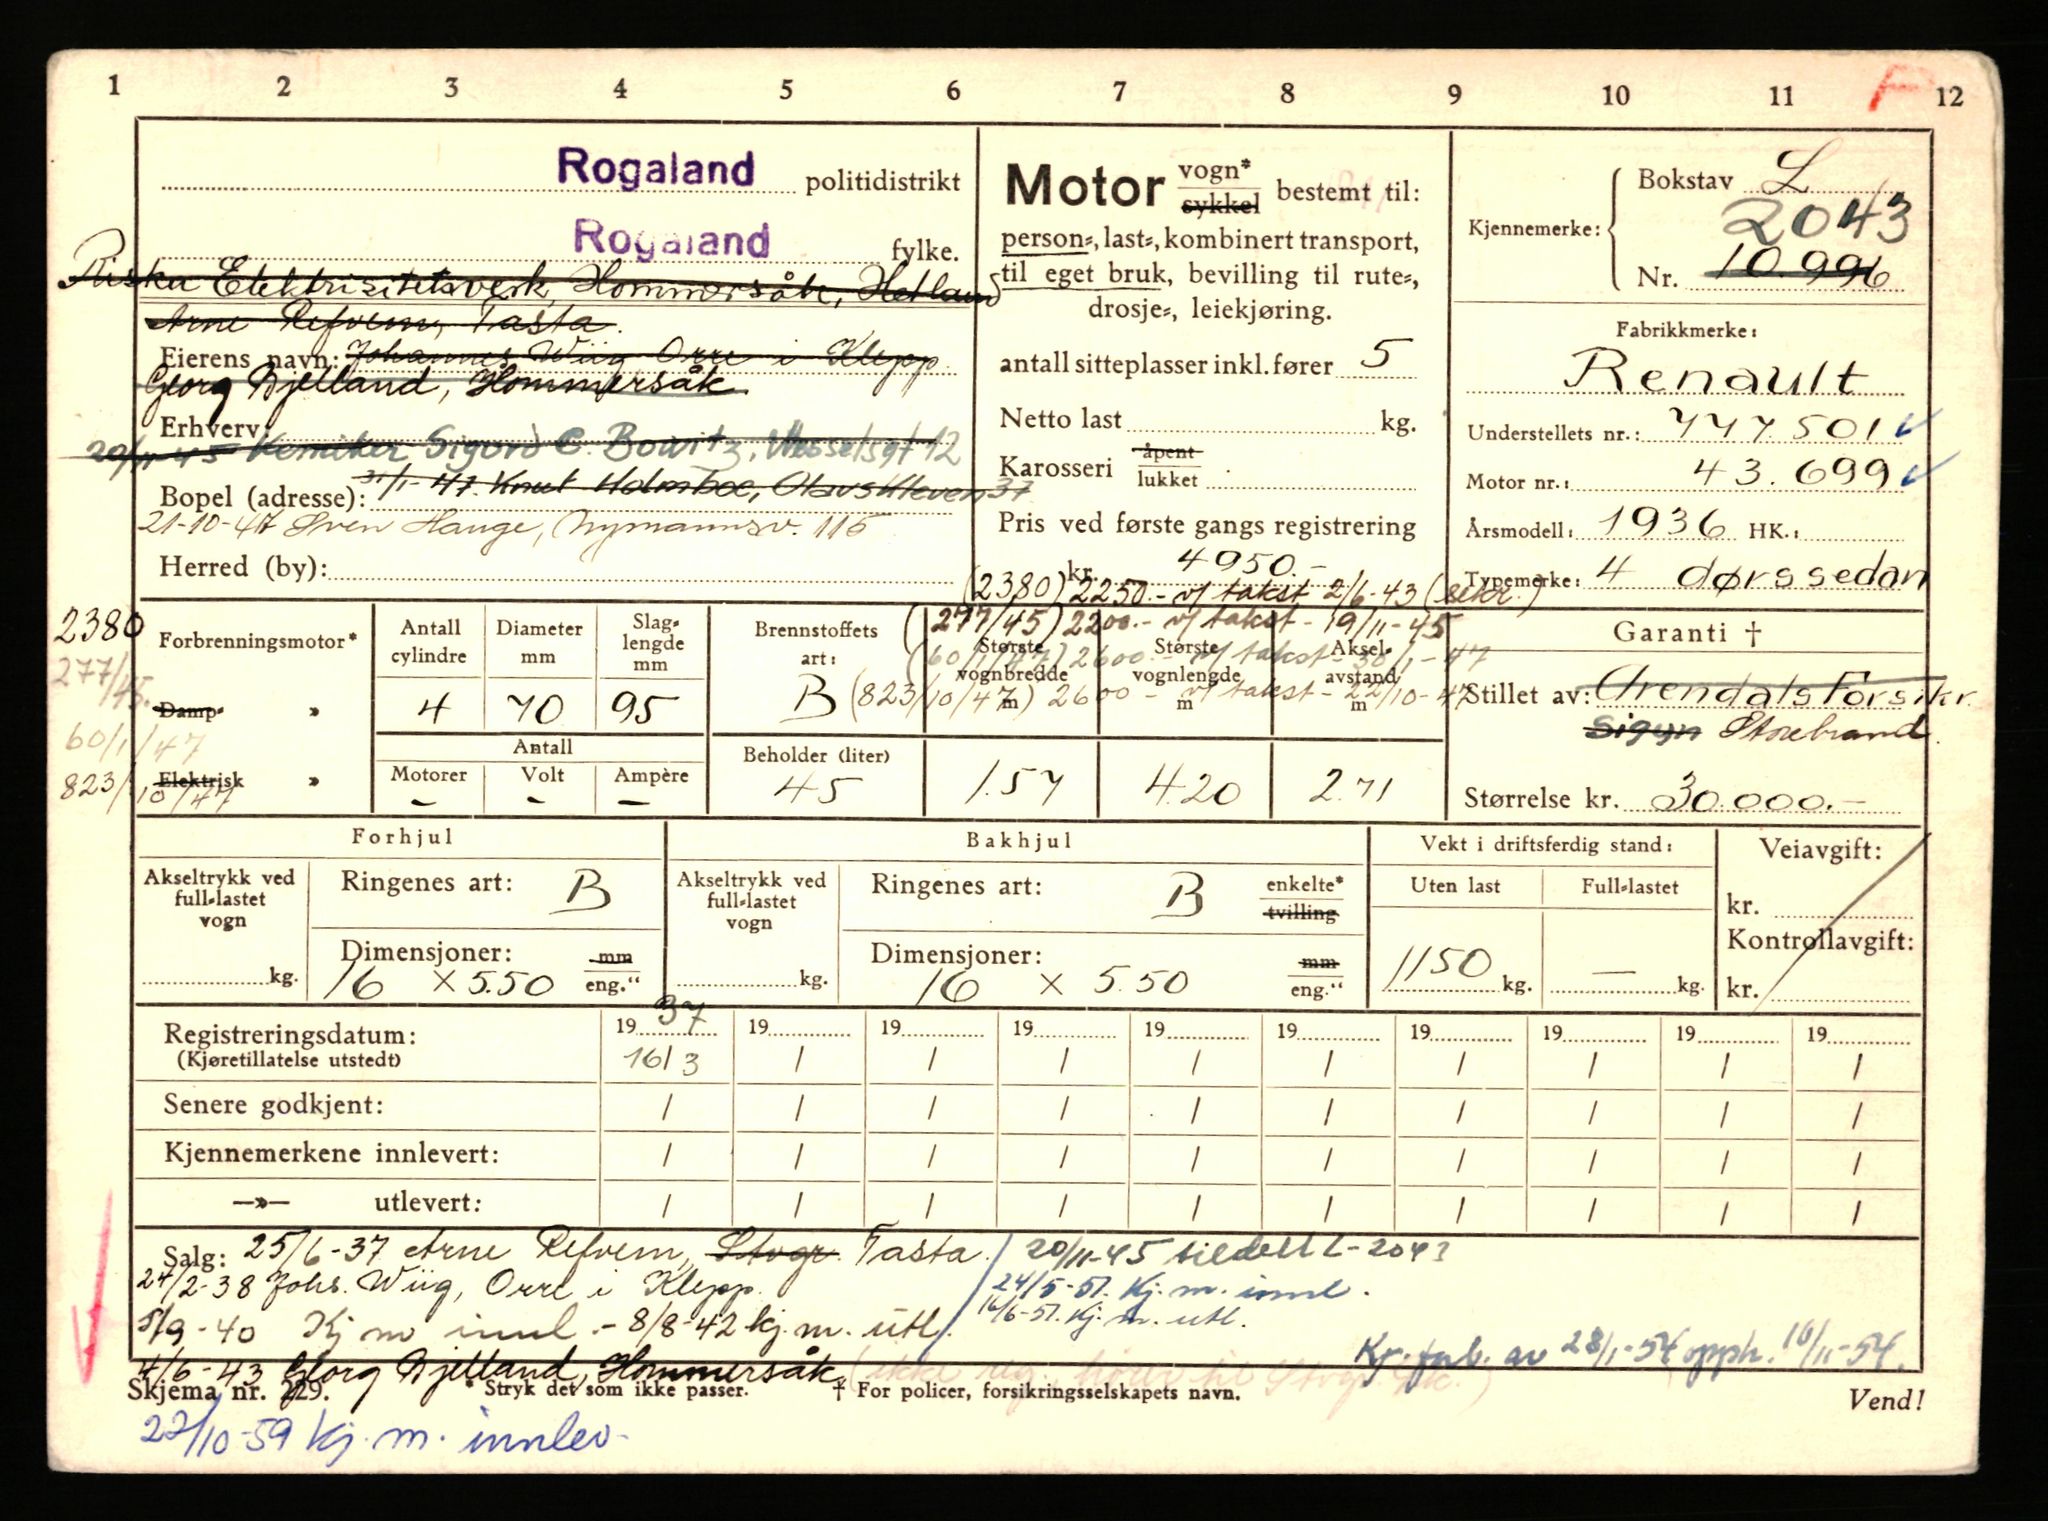 1 2 3 4 5 6 7 8 9 10 11 12
Rogaland politidistrikt
Rogaland fylke.
Riska Elektrisitetsverk, Hommersåk, Hetland
Arne Refvem, Tasta.
Eierens navn: Johannes Wiig Orre i Klepp.
Georg Bjelland, Hommersåk.
Erhverv:
20/11-45 Kemiker Sigurd C. Bowitz, Wesselsgt 12
Bopel (adresse): 31/1-47. Knut Holmboe, Olavskleven 37
21-10-47 Sven Hauge, Nymannsv. 115
Herred (by):
Motor vogn* sykkel bestemt til:
person-, last-, kombinert transport,
til eget bruk, bevilling til rute-,
drosje-, leiekjøring.
antall sitteplasser inkl. fører 5
Netto last kg.
Karosseri åpent lukket
Pris ved første gangs registrering
kr. 4950.-
(2380) 2250.- v/ takst 2/6-43 (sekr.)
(277/45) 2200.- v/ takst - 19/11-45
(60/1/47) 2600.- v/ takst - 30/1-47
(823/10/47) 2600 - v/ takst - 22/10-47
Kjennemerke: Bokstav L
2043
Nr. 10.996
Fabrikkmerke:
Renault
Understellets nr.: 777.501
Motor nr.: 43.699
Årsmodell: 1936 HK.:
Typemerke: 4 dørs sedan
2380
277/45.
60/1/47
823/10/47
Forbrenningsmotor*
Damp- »
Elektrisk »
Antall cylindre
4
Diameter mm
70
Slag-lengde mm
95
Antall
Motorer Volt Ampère
- - -
Brennstoffets art:
B
Beholder (liter)
45
Største vognbredde m
1.57
Største vognlengde m
4.20
Aksel-avstand m
2.71
Garanti †
Stillet av: Arendals Forsikr.
Sigyn Storebrand.
Størrelse kr. 30.000.-
Forhjul
Akseltrykk ved full-lastet vogn
kg.
Ringenes art: B
Dimensjoner: mm
16 × 5.50 eng."
Bakhjul
Akseltrykk ved full-lastet vogn
kg.
Ringenes art: B enkelte* tvilling
Dimensjoner: mm
16 × 5.50 eng."
Vekt i driftsferdig stand:
Uten last Full-lastet
1150 kg. — kg.
Veiavgift:
kr.
Kontrollavgift:
kr.
Registreringsdatum: 19 37 19 19 19 19 19 19 19 19 19
(Kjøretillatelse utstedt) 16/3 / / / / / / / / /
Senere godkjent: / / / / / / / / / /
Kjennemerkene innlevert: / / / / / / / / / /
—»— utlevert: / / / / / / / / / /
Salg: 25/6-37 Arne Refvem, Stvgr. Tasta. 20/11-45 tildelt L-2043
24/2-38 Johs. Wiig, Orre i Klepp. 24/5-51. Kj. m. innl.
5/9-40 Kj m innl. - 8/8-42 kj. m. utl. 16/6-51. Kj. m. utl.
Kj. forb. av 28/1-54 opph. 10/11-54.
4/6-43 Georg Bjelland, Hommersåk. (ikke reg.,
Skjema nr. 229. * Stryk det som ikke passer. † For policer, forsikringsselskapets navn. Vend!
22/10-59 Kj. m. innlev.